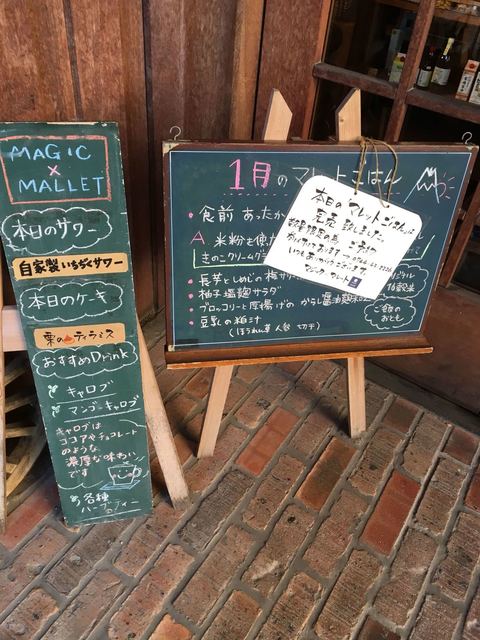 MAGIC
×
MALLET
本日のサワー
自家製いちぢくサワー
本日のケーキ
栗のティラミス
おすすめDrink
キャロブ
マンゴーキャロブ
キャロブは
ココアやチョコレート
のような
濃厚な味わい
です
各種
ハーブティー
1月のマレットごはん
・食前 あったか
A 米粉を使
きのこクリームグ
・長芋としめじの梅サ
・柚子塩麹サラダ
・ブロッコリーと厚揚げの からし醤油麹
・豆乳の粕汁
(ほうれん草 人参 切干)
ジナル
16穀米
ご飯の
おとも
本日の マレットごはんは
完売 致しました。
数量限定の為 ご予約
いつもありがとうございます
マジック マレット